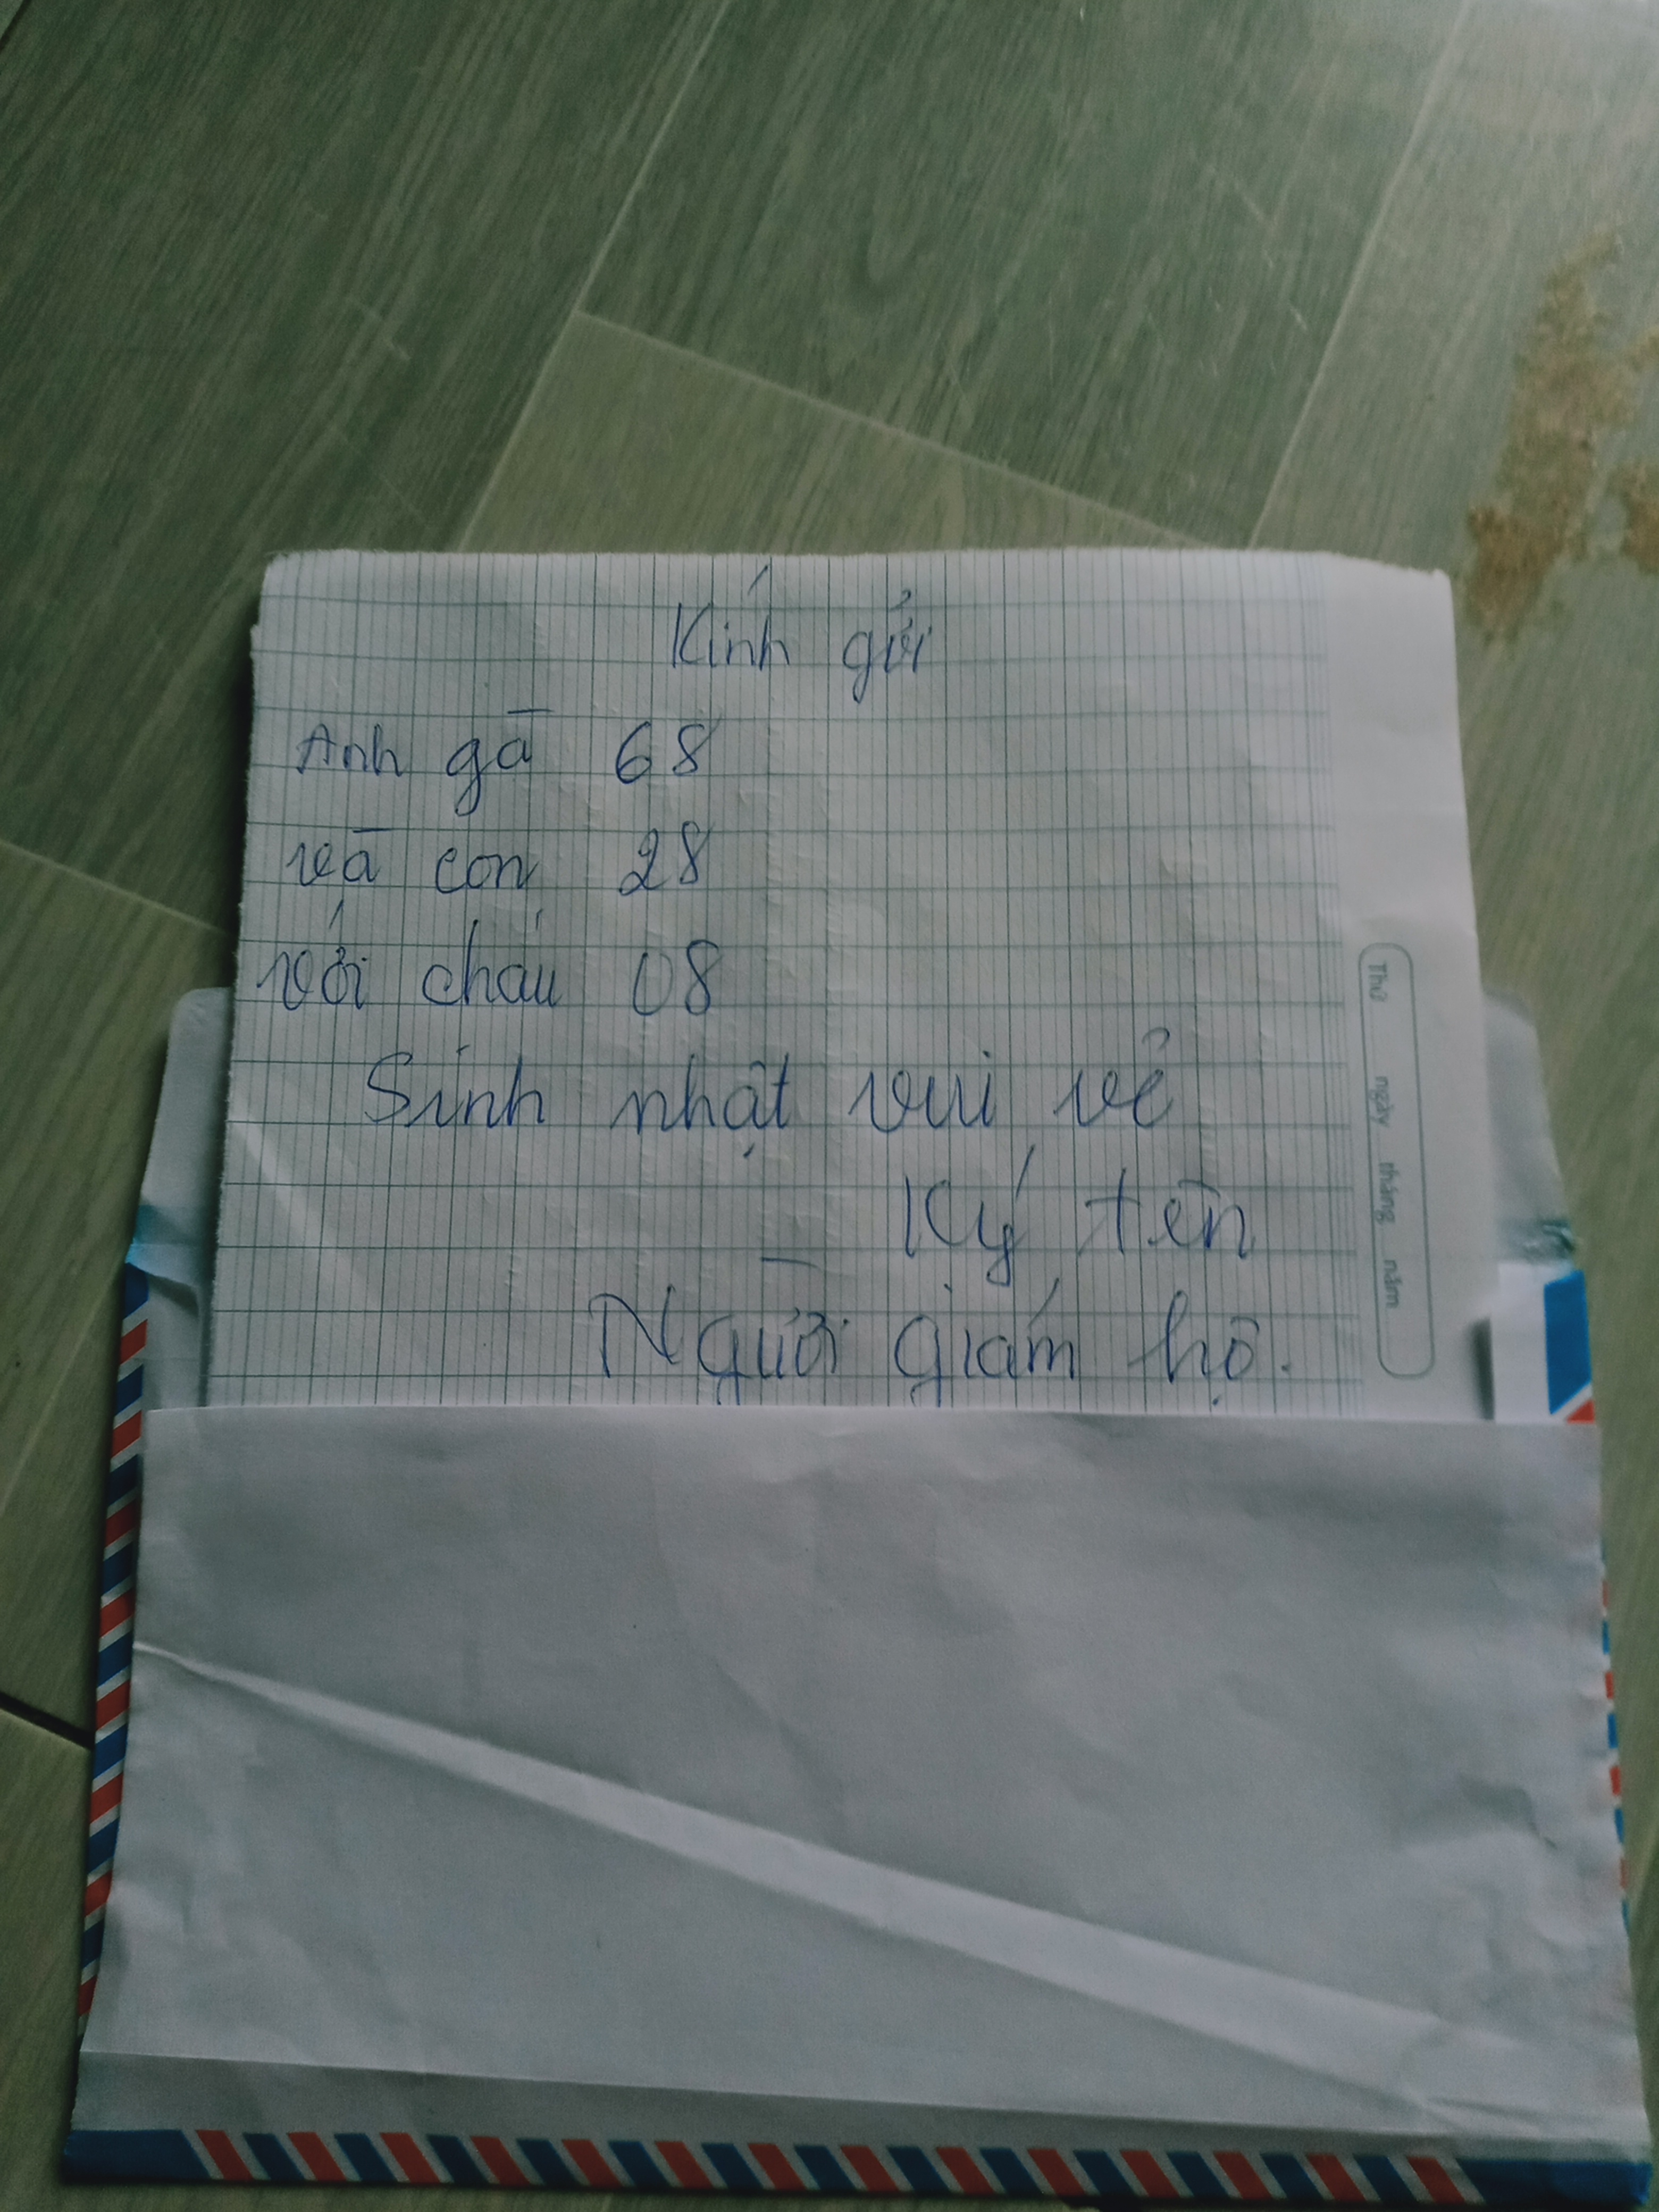 Kính gửi
Anh gà 68
và con 28
với cháu 08
Sinh nhật vui vẻ
Ký tên
Người giám hộ.
Thứ ngày tháng năm